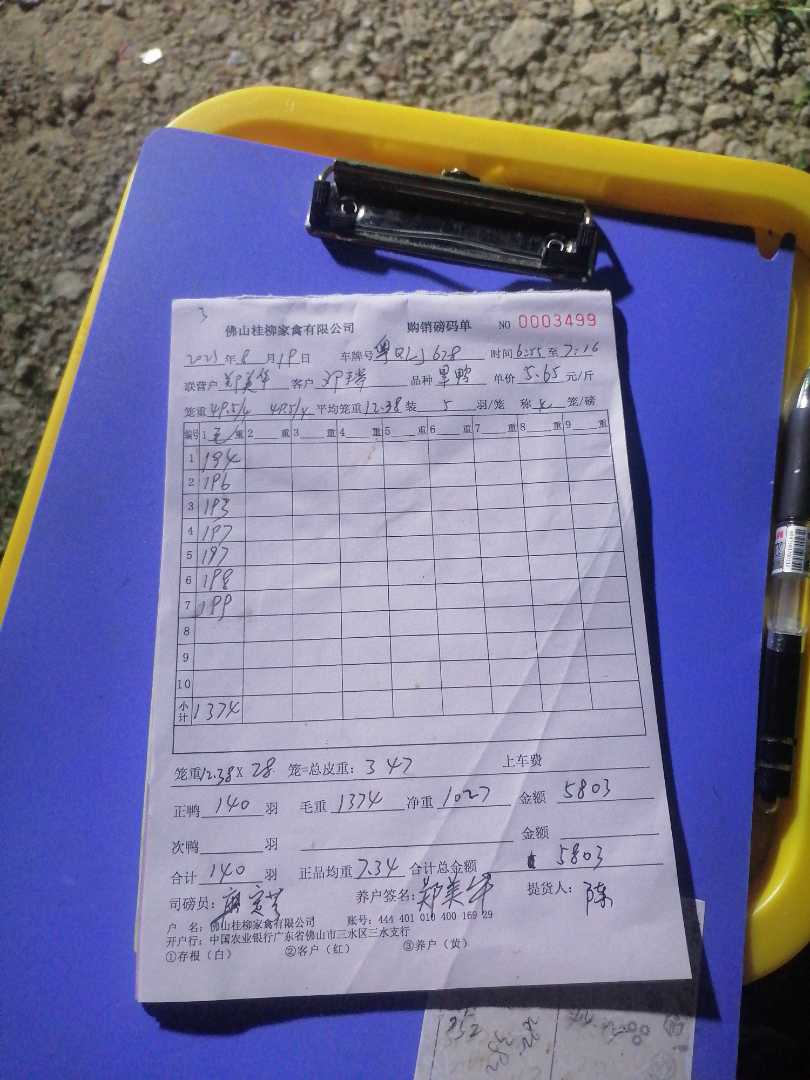 3
佛山桂柳家禽有限公司 购销磅码单 NO 0003499
2023 年 8 月 19 日 车牌号 粤QLJ628 时间 6:55 至 7:16
联营户 郑美华 客户 邓 品种 旱鸭 单价 5.65 元/斤
笼重 49.5/4 49.5/4 平均笼重 12.38 装 5 羽/笼 称 4 笼/磅
编号 1 毛 重 2 重 3 重 4 重 5 重 6 重 7 重 8 重 9 重
1 194
2 196
3 193
4 197
5 197
6 198
7 199
8
9
10
小计 1374
笼重 12.38 X 28 笼=总皮重: 347 上车费
正鸭 140 羽 毛重 1374 净重 1027 金额 5803
次鸭 羽 金额
合计 140 羽 正品均重 7.34 合计总金额 5803
司磅员: 养户签名: 郑美华 提货人: 陈
户 名: 佛山桂柳家禽有限公司 账号: 444 401 010 400 169 29
开户行: 中国农业银行广东省佛山市三水区三水支行
①存根(白) ②客户(红) ③养户(黄)